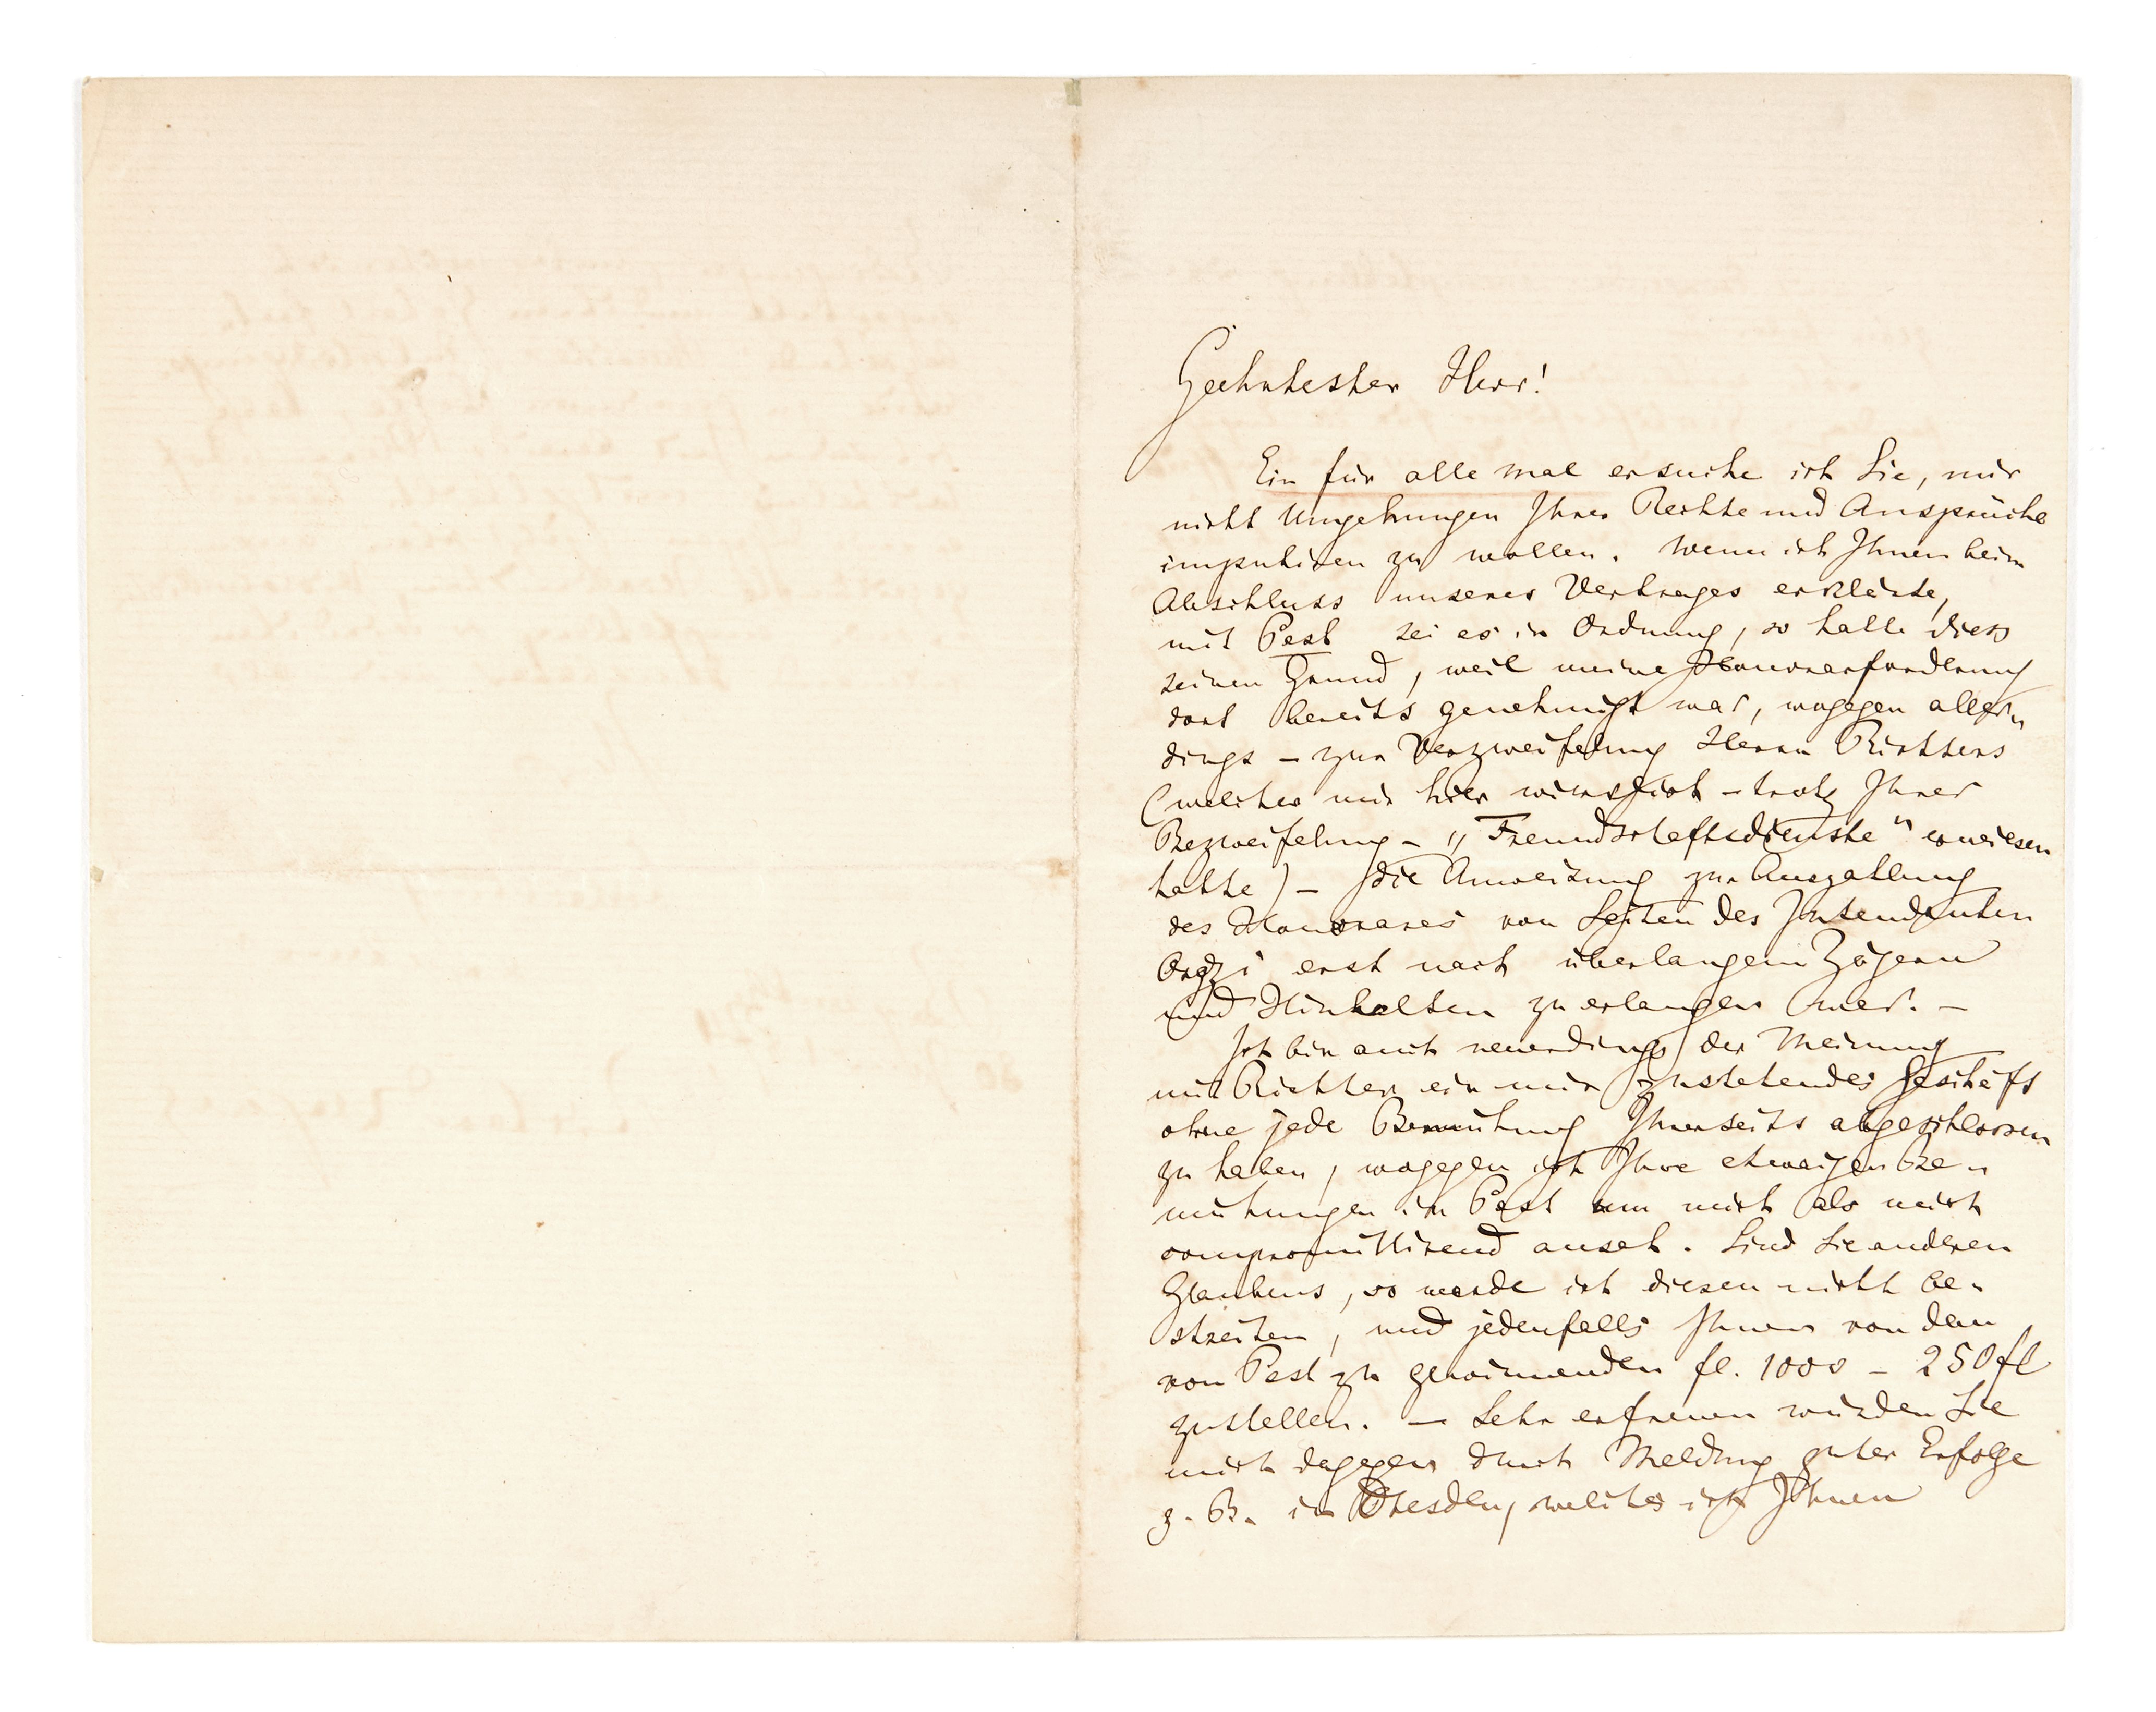 Geehrtester Herr!
Ein für alle mal ersuche ich Sie, mir
nicht Umgehungen Ihrer Rechte und Ansprüche
imputiren zu wollen. Wenn ich Ihnen beim
Abschluss unseres Vertrages erklärte,
mit Pest sei es in Ordnung, so hatte diess
seinen Grund, weil meine Honorarforderung
dort bereits genehmigt war, wogegen aller„
dings – zur Verzweifelung Herrn Richters
(welcher mir hier wirklich – trotz Ihrer
Bezweifelung – „Freundschaftsdienste" erwiesen
hatte) – die Anweisung zur Auszahlung
des Honorares von Seiten des Intendanten
Orczi erst nach überlangem Zögern
und Hinhalten zu erlangen war. –
Ich bin auch neuerdings der Meinung
mit Richter ein mir zustehendes Geschäft
ohne jede Bemühung Ihrerseits abgeschlossen
zu haben, wogegen ich Ihre etwaigen Be-
mühungen in Pest um mich als mich
compromittirend ansah. Sind Sie anderen
Glaubens, so werde ich diesen nicht be-
streiten, und jedenfalls Ihnen von den
von Pest zu gewinnenden fl. 1000 – 250 fl
zustellen. – Sehr erfreuen würden Sie
mich dagegen durch Meldung guter Erfolge
z. B. in Dresden, welches ich Ihnen